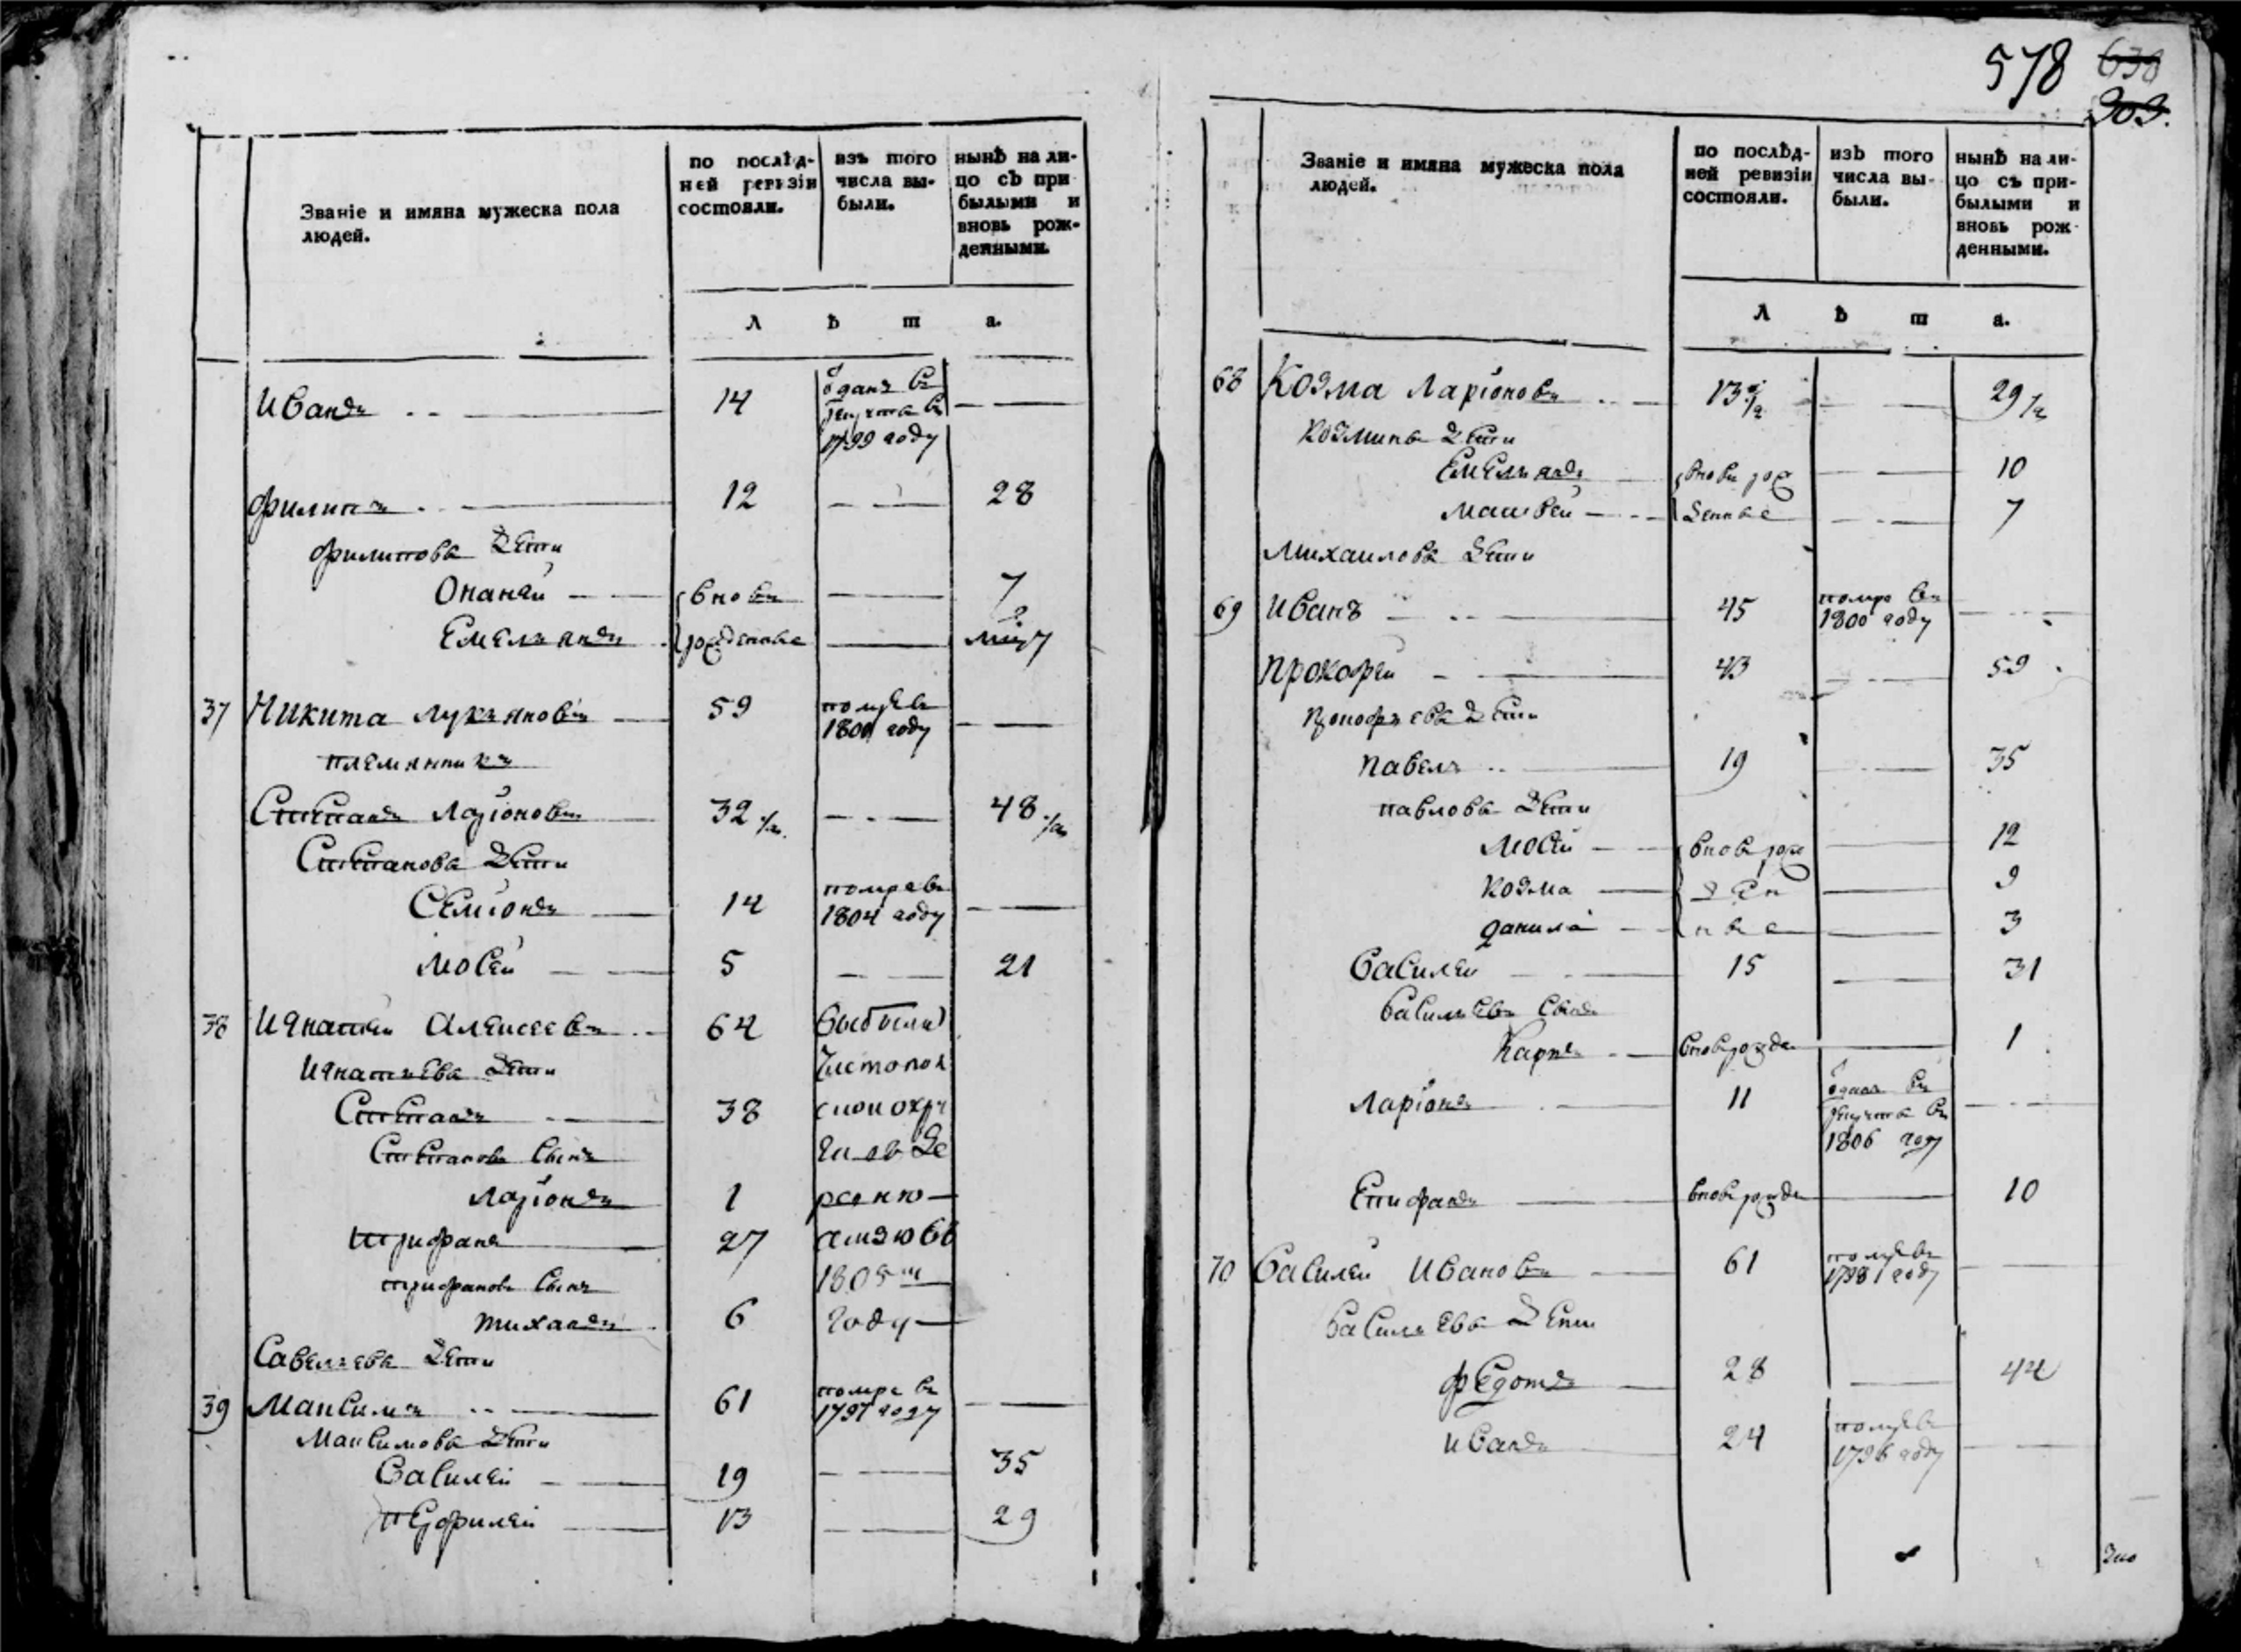 Званіе и имяна мужеска пола
людей.
по послѣд-
ней ревизіи
состояли.
изъ того
числа вы-
были.
нынѣ на ли-
цо съ при
былыми и
вновь рож-
денными.
Л ѣ т а.
Иванъ 14 отданъ въ
рекруты въ
1799 году
Филипъ 12 28
Филипова дети
Онаней вновь 7
Емельянъ рожденные
37 Никита Лукьяновъ 59 помре въ
1800 году
племянникъ
Степанъ Ларіоновъ 32 1/2 48 1/2
Степанова дети
Семіонъ 14 помре въ
1804 году
Мосей 5 21
38 Игнатей Алексеевъ 64 выбыли
Игнатьева дети чистопол
Степанъ 38 ской окру
Степановъ сынъ ги въ де
Ларіонъ 1 ревню
Трифанъ 27
Трифановъ сынъ 1805 м
Тиханъ 6 году
Савельева дети
39 Максимъ 61 помре въ
1797 году
Максимова дети
Василей 19 35
Перфилей 13 29
578 638
303.
Званіе и имяна мужеска пола
людей.
по послѣд-
ней ревизіи
состояли.
изъ того
числа вы-
были.
нынѣ на ли-
цо съ при-
былыми и
вновь рож
денными.
Л ѣ т а.
68 Козма Ларіоновъ 13 1/2 29 1/2
Козмины дети
Емельянъ вновь рож 10
Матвей денные 7
Михаилова дети
69 Иванъ 45 помре въ
1800 году
Прокофей 43 59
Прокофьева дети
Павелъ 19 35
Павлова дети
Мосей вновь рож 12
Козма ден 9
Данила ные 3
Василей 15 31
Васильевъ сынъ
Карпъ вновь рожде 1
Ларіонъ 11 отданъ въ
рекруты въ
1806 году
Епифанъ вновь рожде 10
70 Василей Ивановъ 61 помре въ
1798 году
Васильева дети
Федотъ 28 44
Иванъ 24 помре въ
1796 году